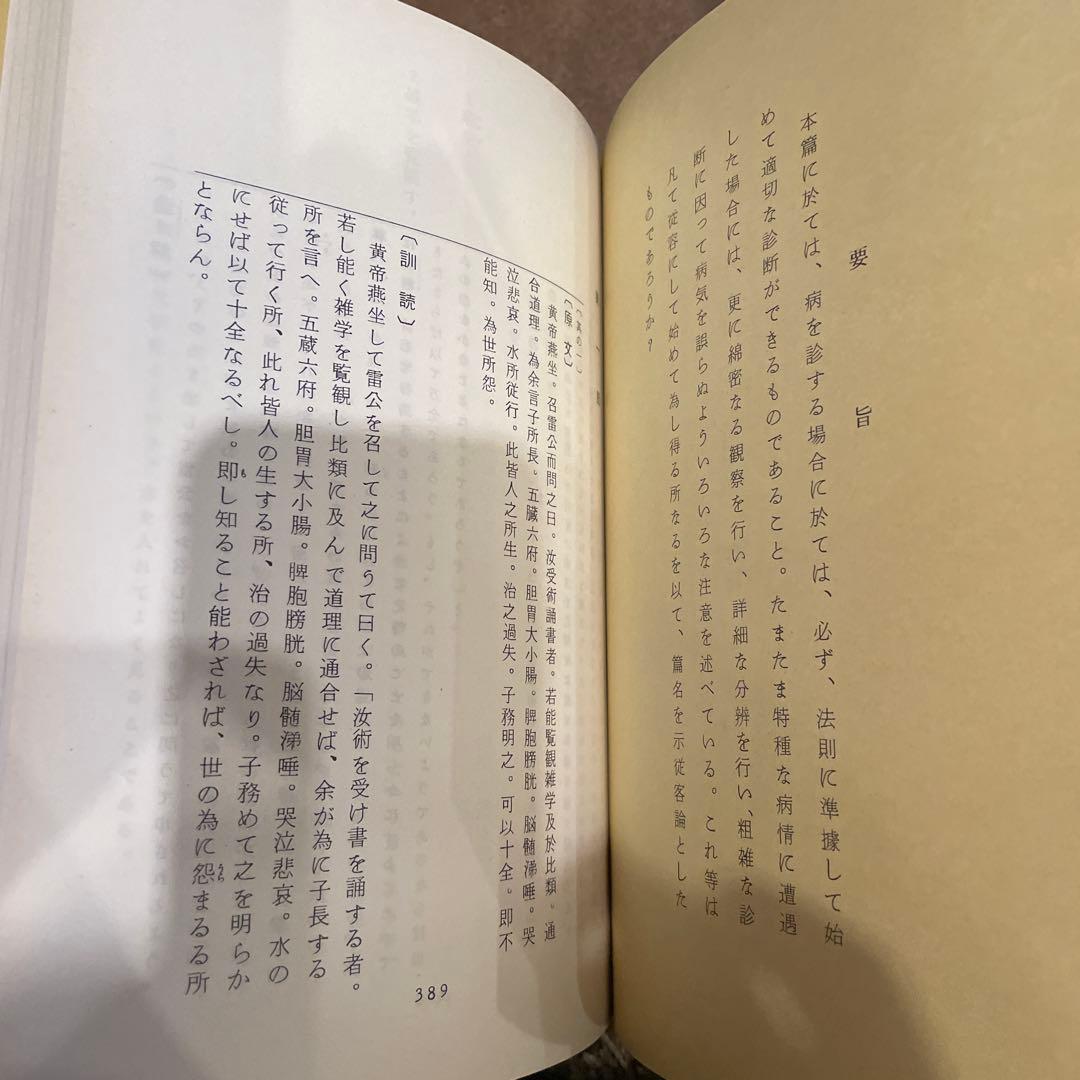 要旨
本篇に於ては、病を診する場合に於ては、必ず、法則に準據して始
めて適切な診断ができるものであること。たまたま特種な病情に遭遇
した場合には、更に綿密なる観察を行い、詳細な分辨を行い、粗雑な診
断に因って病気を誤らぬよういろいろな注意を述べている。これ等は
凡て従容にして始めて為し得る所なるを以て、篇名を示従客論とした
ものであろうか？
（其の一）
〔原文〕
黄帝燕坐。召雷公而問之曰。汝受術誦書者。若能覧観雑学及於比類。通
合道理。為余言子所長。五臓六府。胆胃大小腸。脾胞膀胱。脳髄涕唾。哭
泣悲哀。水所従行。此皆人之所生。治之過失。子務明之。可以十全。即不
能知。為世所怨。
〔訓読〕
黄帝燕坐して雷公を召して之に問うて曰く。「汝術を受け書を誦する者。
若し能く雑学を覧観し比類に及んで道理に通合せば、余が為に子長する
所を言へ。五蔵六府。胆胃大小腸。脾胞膀胱。脳髄涕唾。哭泣悲哀。水の
従って行く所、此れ皆人の生する所、治の過失なり。子務めて之を明らか
にせば以て十全なるべし。即し知ること能わざれば、世の為に怨まるる所
とならん。
389